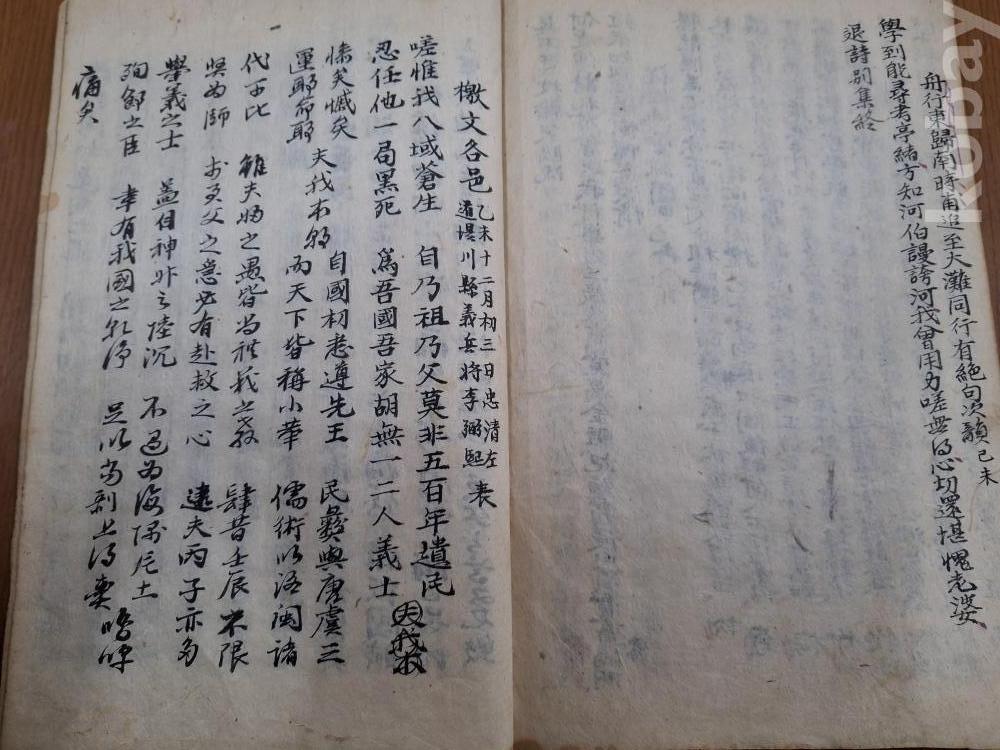 舟行東歸南時甫追至大灘同行有絕句次韻己未
學到能尋考亭緒方知河伯謾誇河我曾用力嗟無得心切還堪愧老婆
退詩別集終
檄文各邑 乙未十二月初三日忠清左
道堤川縣義兵將李弼熙 表
嗟惟我八域蒼生 自乃祖乃父莫非五百年遺民
忍任他一局黑死 爲吾國吾家胡無一二人義士
慘矣慽矣 自國初悉遵先王 民彝與唐虞三
運耶命耶 夫我本朝 而天下皆稱小華 儒術以洛閩諸
代可比 雖夫婦之愚皆尚禮義之教 肆昔壬辰不限
與為師 於君父之急必有赴救之心 逮夫丙子亦多
學義之士 盖自神州之陸沉 不過為海隅片土
殉節之臣 幸有我國之乾淨 足以當剝上得輿 嗚呼
痛矣
kobay